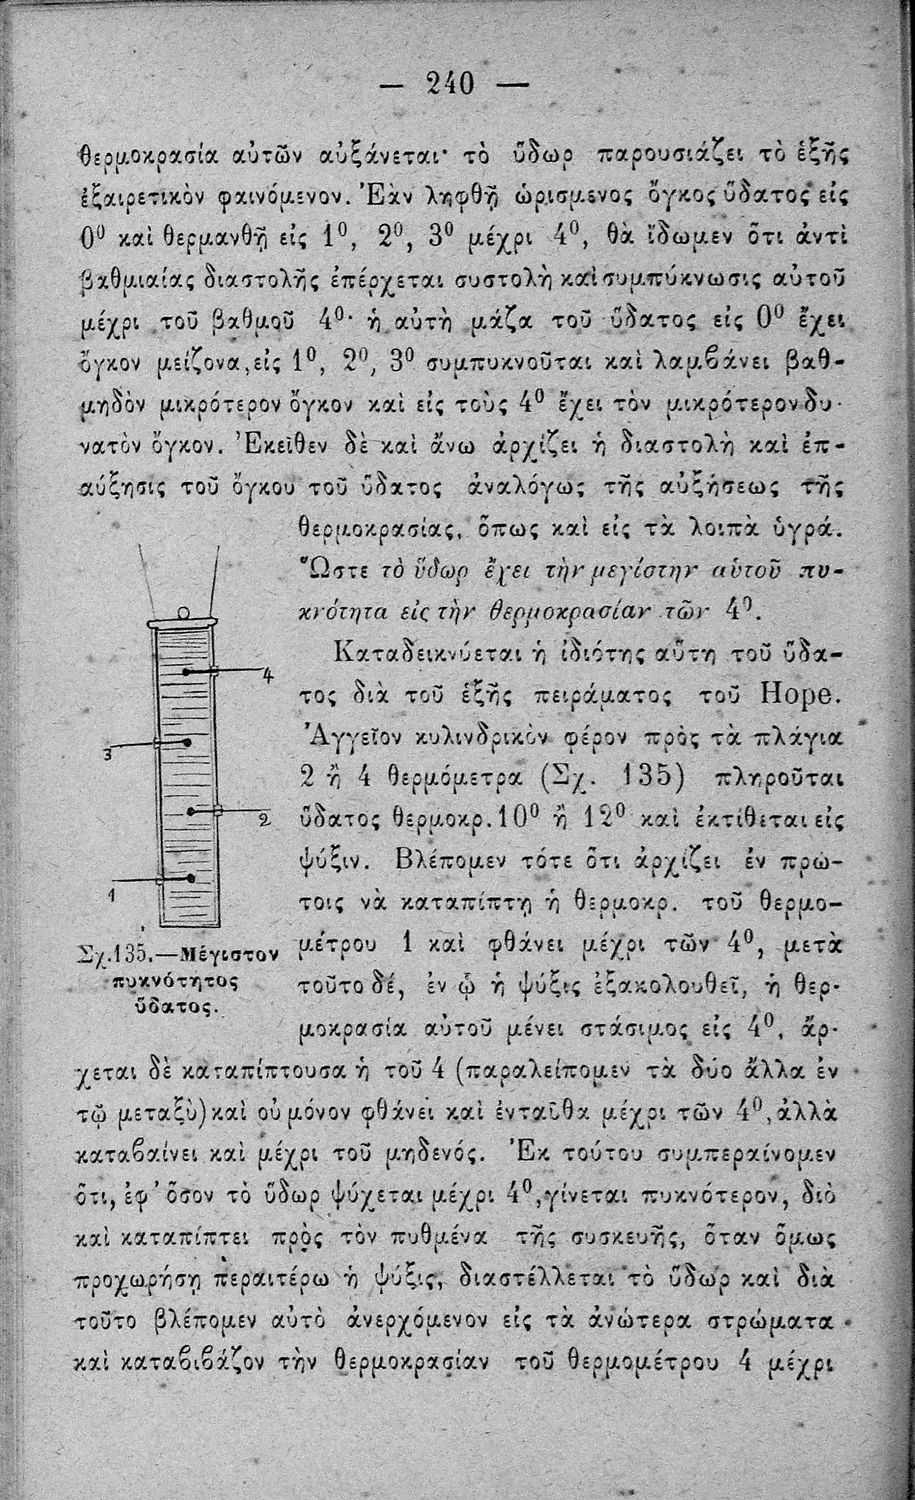 — 240 —
θερμοκρασία αὐτῶν αὐξάνεται· τὸ ὕδωρ παρουσιάζει τὸ ἑξῆς
ἐξαιρετικὸν φαινόμενον. Ἐὰν ληφθῇ ὡρισμενος ὄγκος ὕδατος εἰς
0⁰ καὶ θερμανθῇ εἰς 1⁰, 2⁰, 3⁰ μέχρι 4⁰, θὰ ἴδωμεν ὅτι ἀντὶ
βαθμιαίας διαστολῆς ἐπέρχεται συστολὴ καὶ συμπύκνωσις αὐτοῦ
μέχρι τοῦ βαθμοῦ 4⁰· ἡ αὐτὴ μάζα τοῦ ὕδατος εἰς 0⁰ ἔχει
ὄγκον μείζονα, εἰς 1⁰, 2⁰, 3⁰ συμπυκνοῦται καὶ λαμβάνει βαθ-
μηδὸν μικρότερον ὄγκον καὶ εἰς τοὺς 4⁰ ἔχει τὸν μικρότερον δυ-
νατὸν ὄγκον. Ἐκεῖθεν δὲ καὶ ἄνω ἀρχίζει ἡ διαστολὴ καὶ ἐπ-
αύξησις τοῦ ὄγκου τοῦ ὕδατος ἀναλόγως τῆς αὐξήσεως τῆς
θερμοκρασίας, ὅπως καὶ εἰς τὰ λοιπὰ ὑγρά.
Ὥστε τὸ ὕδωρ ἔχει τὴν μεγίστην αὑτοῦ πυ-
κνότητα εἰς τὴν θερμοκρασίαν τῶν 4⁰.
Καταδεικνύεται ἡ ἰδιότης αὕτη τοῦ ὕδα-
τος διὰ τοῦ ἑξῆς πειράματος τοῦ Hope.
Ἀγγεῖον κυλινδρικὸν φέρον πρὸς τὰ πλάγια
2 ἢ 4 θερμόμετρα (Σχ. 135) πληροῦται
ὕδατος θερμοκρ. 10⁰ ἢ 12⁰ καὶ ἐκτίθεται εἰς
ψύξιν. Βλέπομεν τότε ὅτι ἀρχίζει ἐν πρώ-
τοις νὰ καταπίπτῃ ἡ θερμοκρ. τοῦ θερμο-
μέτρου 1 καὶ φθάνει μέχρι τῶν 4⁰, μετὰ
τοῦτο δέ, ἐν ᾧ ἡ ψύξις ἐξακολουθεῖ, ἡ θερ-
μοκρασία αὐτοῦ μένει στάσιμος εἰς 4⁰, ἄρ-
4
3
2
1
Σχ. 135.—Μέγιστον
πυκνότητος
ὕδατος.
χεται δὲ καταπίπτουσα ἡ τοῦ 4 (παραλείπομεν τὰ δύο ἄλλα ἐν
τῷ μεταξὺ) καὶ οὐ μόνον φθάνει καὶ ἐνταῦθα μέχρι τῶν 4⁰, ἀλλὰ
καταβαίνει καὶ μέχρι τοῦ μηδενός. Ἐκ τούτου συμπεραίνομεν
ὅτι, ἐφ' ὅσον τὸ ὕδωρ ψύχεται μέχρι 4⁰, γίνεται πυκνότερον, διὸ
καὶ καταπίπτει πρὸς τὸν πυθμένα τῆς συσκευῆς, ὅταν ὅμως
προχωρήσῃ περαιτέρω ἡ ψύξις, διαστέλλεται τὸ ὕδωρ καὶ διὰ
τοῦτο βλέπομεν αὐτὸ ἀνερχόμενον εἰς τὰ ἀνώτερα στρώματα
καὶ καταβιβάζον τὴν θερμοκρασίαν τοῦ θερμομέτρου 4 μέχρι